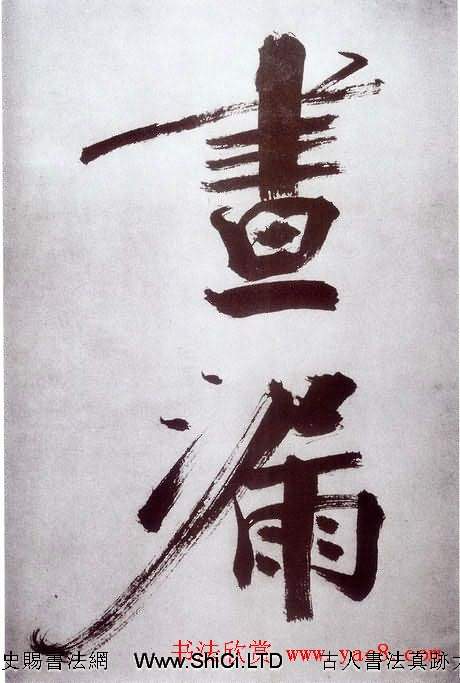 晝
漏
书法欣赏 www.ya-8.com
史賜書法網 Www.ShiCi.LTD 古人書法真跡